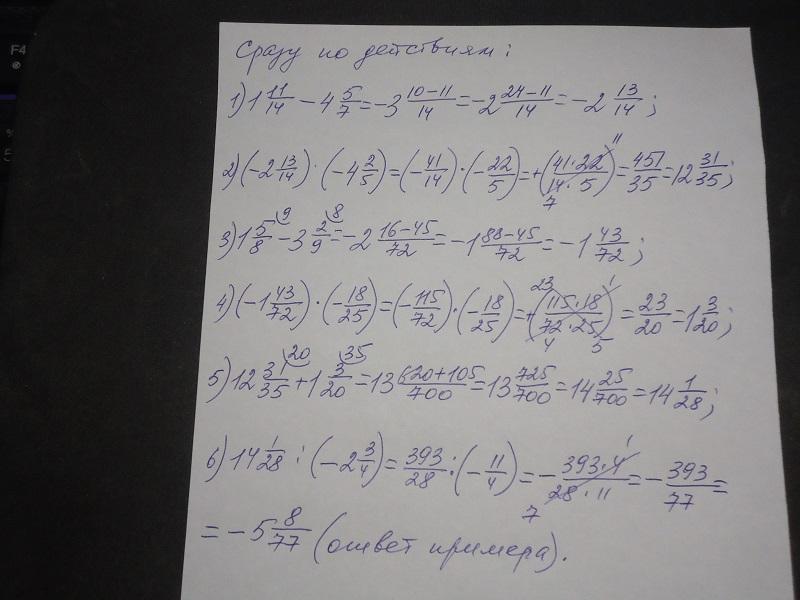 F4
Сразу по действиям:
1) 1 11/14 - 4 5/7 = -3 (10-11)/14 = -2 (24-11)/14 = -2 13/14;
2) (-2 13/14)·(-4 2/5) = (-41/14)·(-22/5) = +(41·22/14·5) 11 7 = 451/35 = 12 31/35;
3) 1 5/8 9 - 3 2/9 8 = -2 (16-45)/72 = -1 (88-45)/72 = -1 43/72;
4) (-1 43/72)·(-18/25) = (-115/72)·(-18/25) = +(115·18/72·25) 23 1 4 5 = 23/20 = 1 3/20;
5) 12 31/35 20 + 1 3/20 35 = 13 (620+105)/700 = 13 725/700 = 14 25/700 = 14 1/28;
6) 14 1/28 : (-2 3/4) = 393/28 : (-11/4) = - 393·4/28·11 1 7 = - 393/77 =
= -5 8/77 (ответ примера).